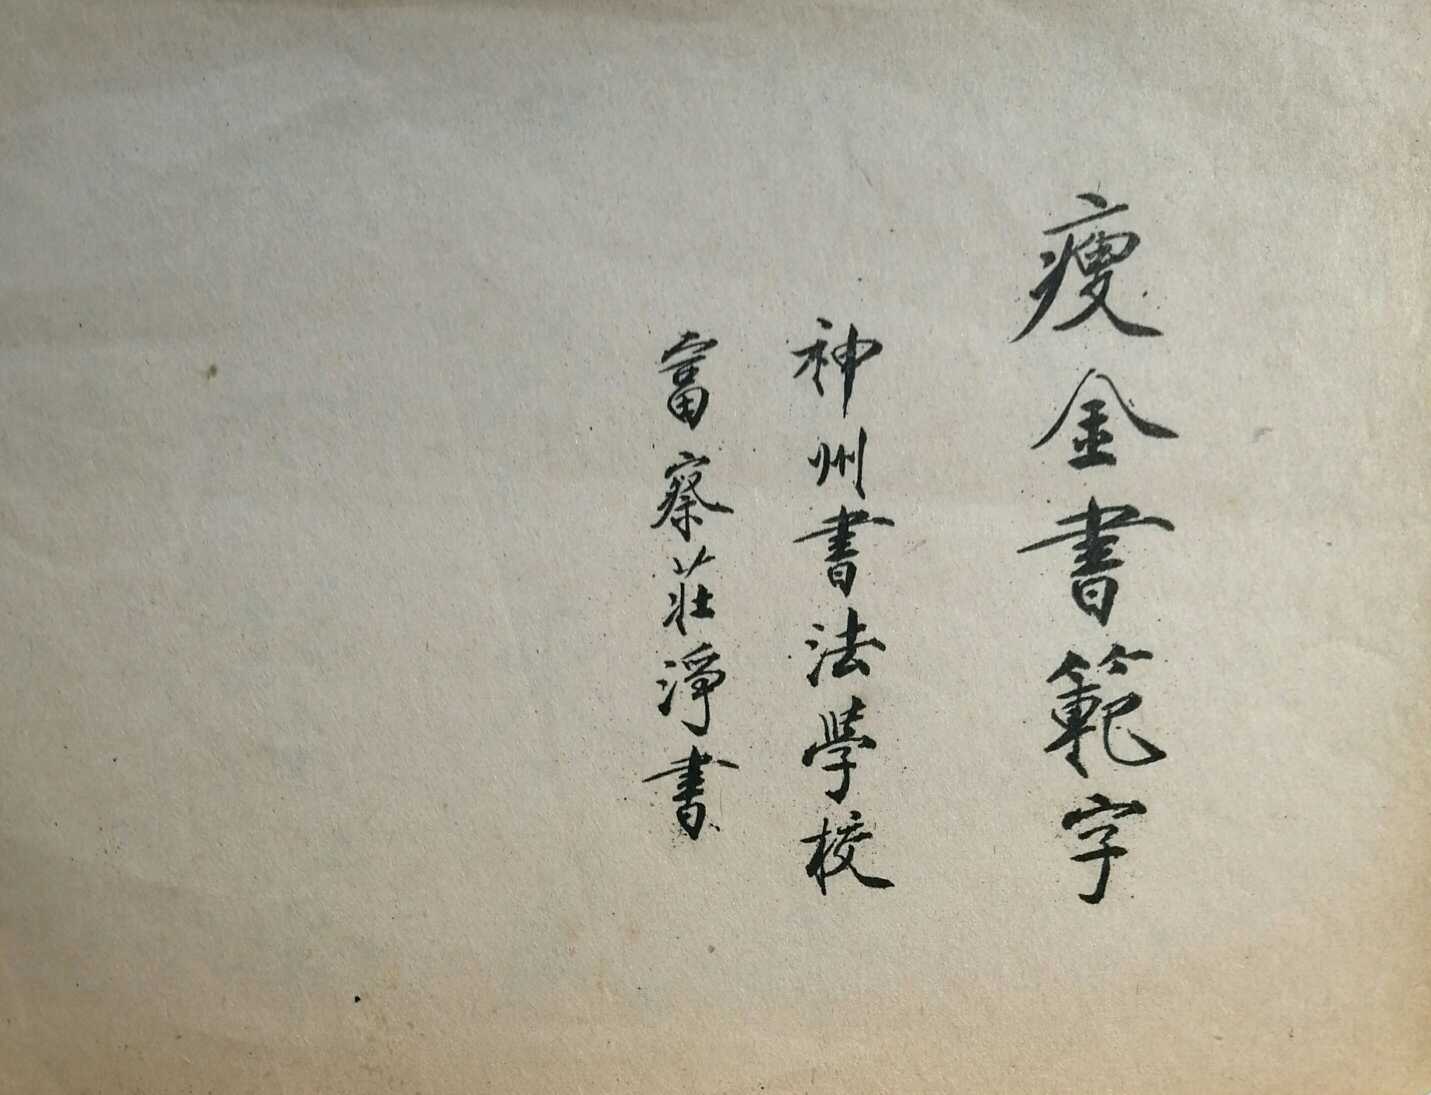 瘦金書範字
神州書法學校
富察莊淨書